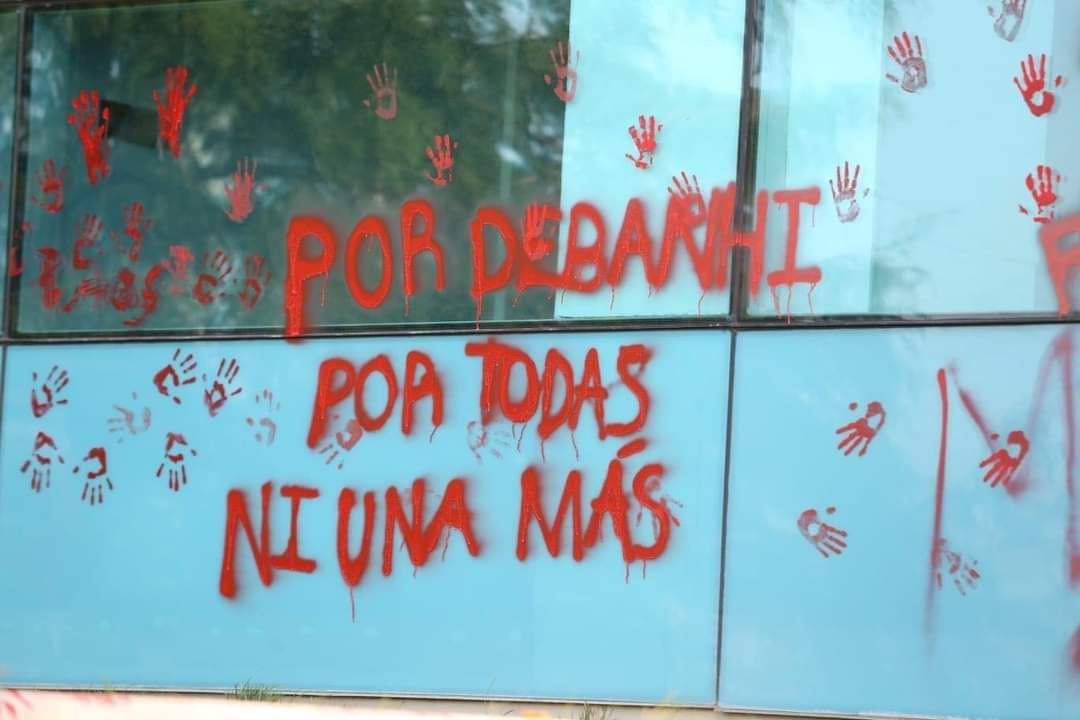 POR DEBANHI
POR TODAS
NI UNA MÁS